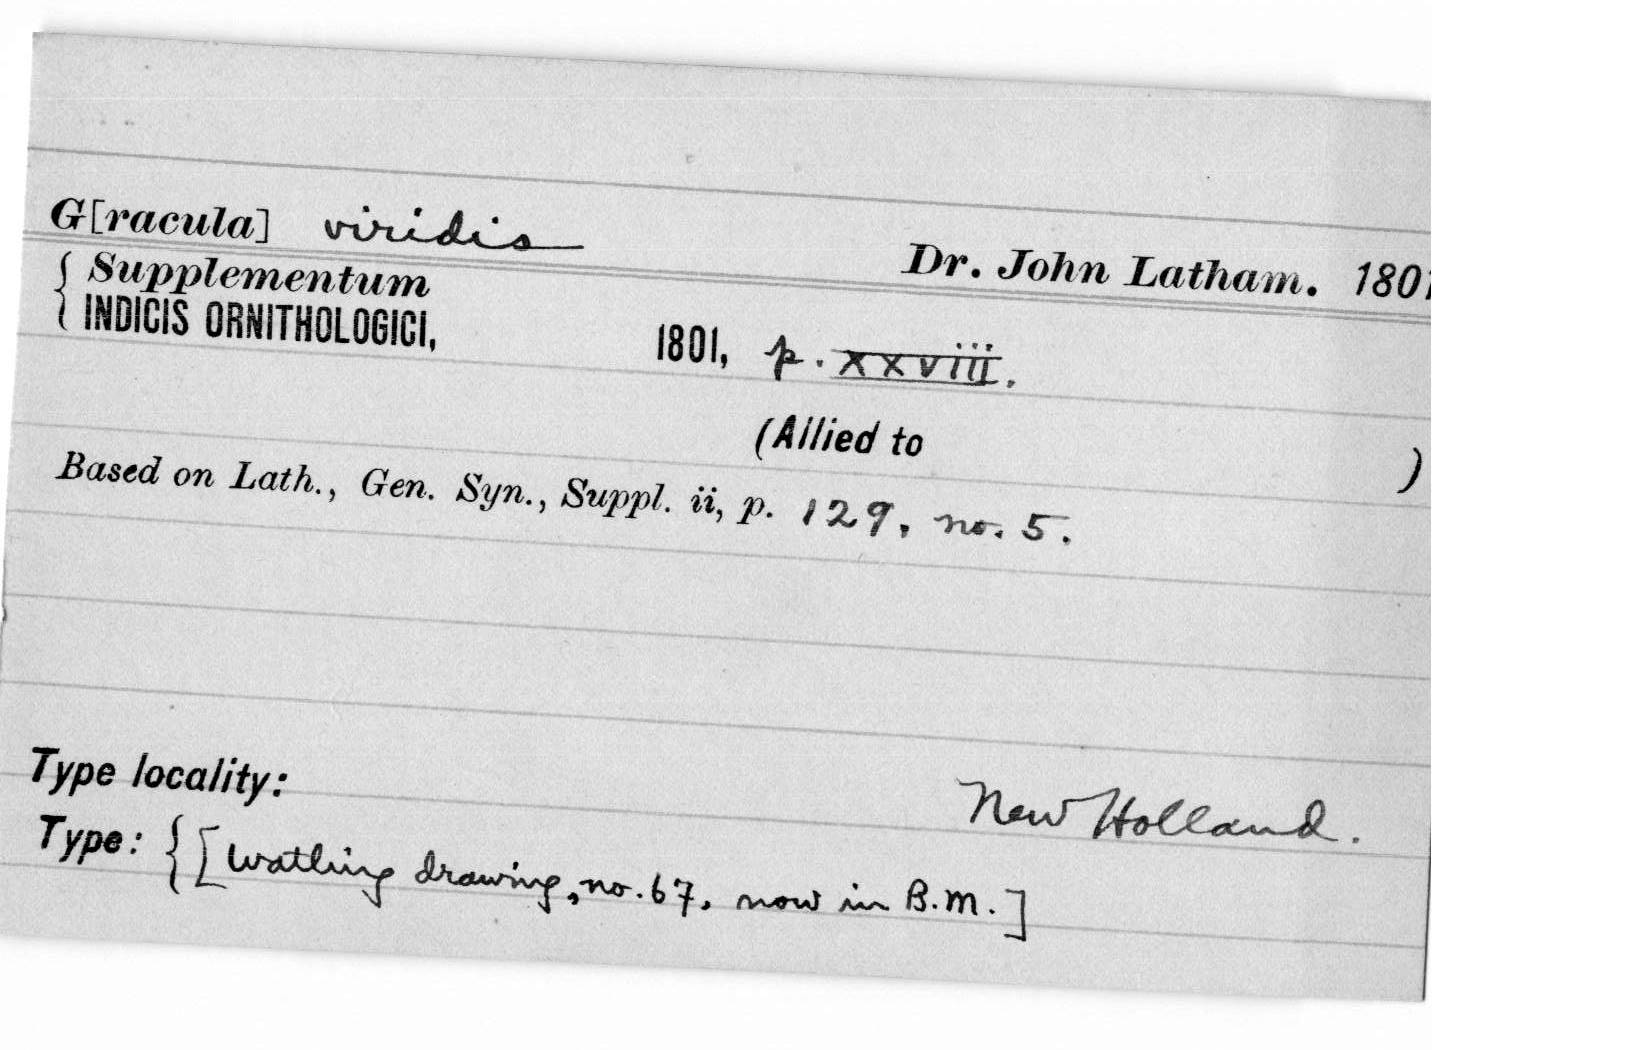 G[racula] viridis
Dr. John Latham. 1801
{ Supplementum
INDICIS ORNITHOLOGICI, 1801, p. xxviii.
(Allied to )
Based on Lath., Gen. Syn., Suppl. ii, p. 129, no. 5.
Type locality: New Holland.
Type: {[Watling drawing, no. 67, now in B.M.]